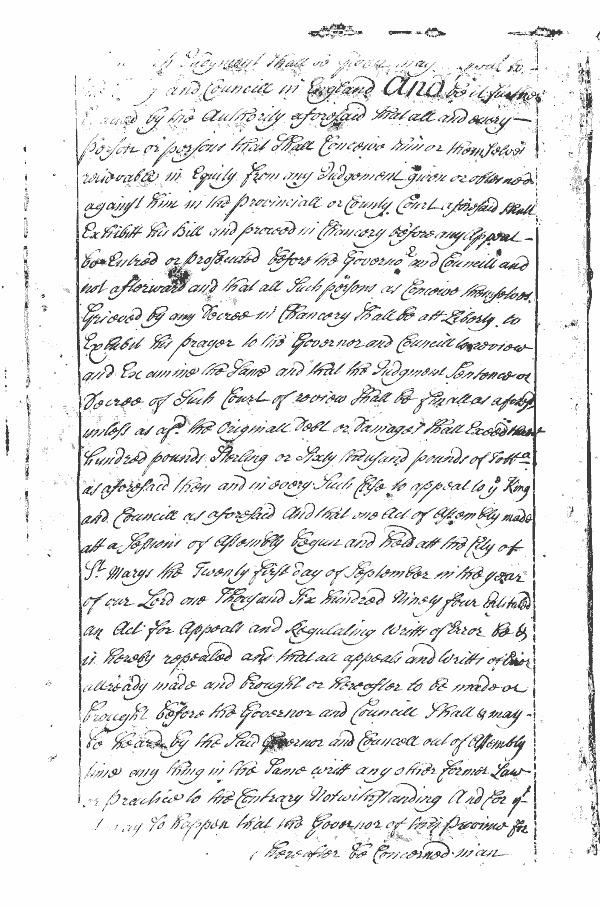 Judgment shall be given may
and Councill in England And be it further
by the Authority aforesaid that all and every
person or persons that shall Conceive him or themselves
relievable in Equity from any Judgement given or obteined
against him in the Provinciall or County Court aforesaid shall
Exhibitt his Bill and proceed in Chancery before any Appeal
be Entred or prosecuted before the Governor and Councill and
not afterward and that all Such persons as Conceive themselves
Grieved by any Decree in Chancery Shall be att Liberty to
Exhibit his prayer to the Governor and Councill to review
and Examine the Same and that the Judgment Sentence or
Decree of Such Court of review Shall be finall as aforesd
unless as afd. the Originall Debt or Damages shall Exceed
hundred pounds Sterling or Sixty thousand pounds of Tobbo
as aforesaid then and in every Such Case to appeal to ye King
and Councill as aforesaid And that one Act of Assembly made
att a Sessions of Assembly begun and held att the City of
St. Marys the Twenty first day of September in the year
of our Lord one Thousand Six hundred Ninety four Entituled
an Act for Appeals and Regulating Writts of Error be &
is hereby repealed and that all appeals and Writts of Error
allready made and brought or hereafter to be made or
brought before the Governor and Councill Shall & may
be heard by the Said Governor and Councell out of Assembly
time any thing in the Same writt any other former Law
or Practice to the Contrary Notwithstanding And for yt
may So happen that the Governor of this Province for
hereafter be Concerned in an